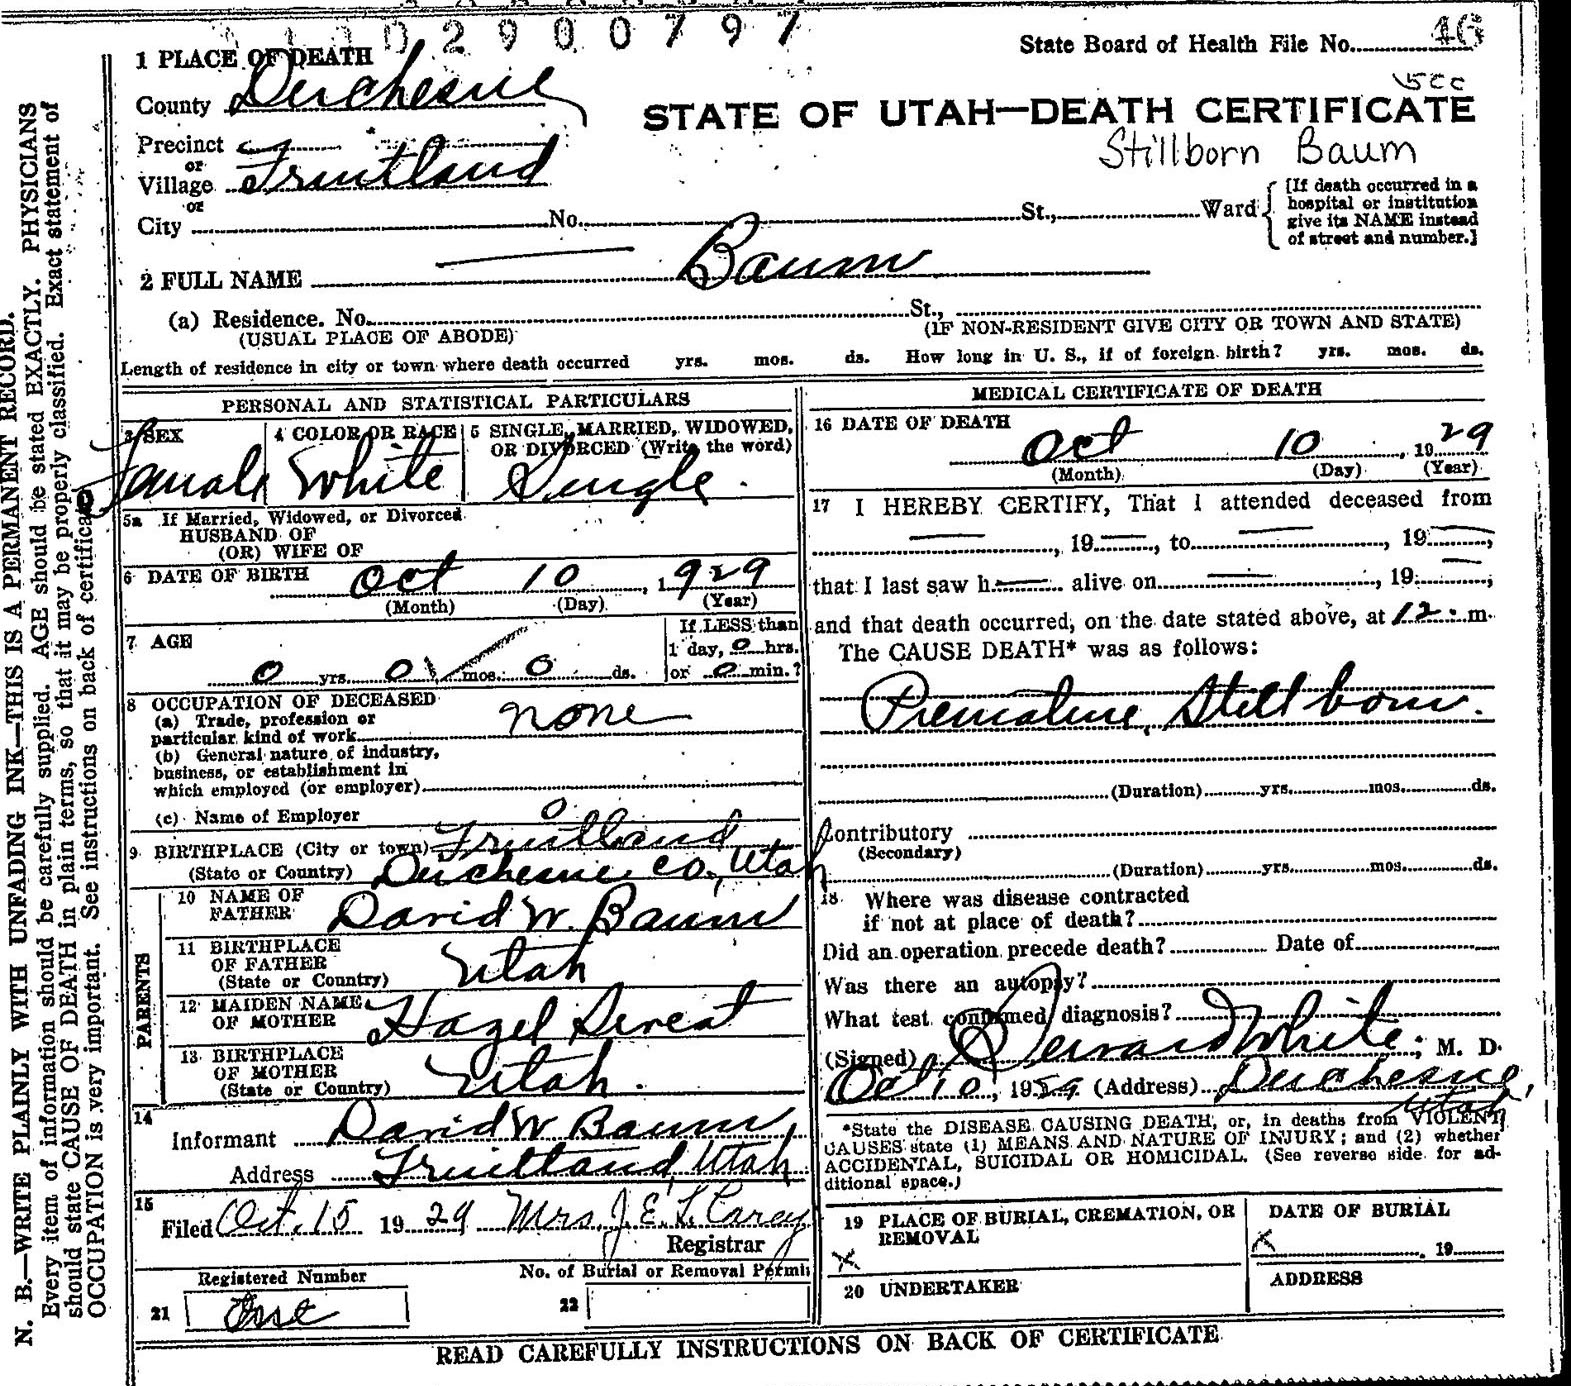 2900797
State Board of Health File No. 46
1 PLACE OF DEATH
County Duchesne
STATE OF UTAH—DEATH CERTIFICATE
Stillborn Baum
Precinct
or
Village Fruitland
or
City No. St., Ward
[If death occurred in a
hospital or institution
give its NAME instead
of street and number.]
2 FULL NAME Baum
(a) Residence. No. St.,
(USUAL PLACE OF ABODE) (IF NON-RESIDENT GIVE CITY OR TOWN AND STATE)
Length of residence in city or town where death occurred yrs. mos. ds. How long in U. S., if of foreign birth? yrs. mos. ds.
PERSONAL AND STATISTICAL PARTICULARS
3 SEX 4 COLOR OR RACE 5 SINGLE, MARRIED, WIDOWED,
OR DIVORCED (Write the word)
Famale White Single.
5a If Married, Widowed, or Divorced
HUSBAND OF
(OR) WIFE OF
6 DATE OF BIRTH Oct 10, 1929
(Month) (Day) (Year)
7 AGE
If LESS than
1 day, 0 hrs.
0 yrs. 0 mos. 0 ds. or 0 min.?
8 OCCUPATION OF DECEASED
(a) Trade, profession or
particular kind of work none
(b) General nature of industry,
business, or establishment in
which employed (or employer)
(c) Name of Employer 0
9 BIRTHPLACE (City or town) Fruitland
(State or Country) Duchesne Co., Utah
PARENTS
10 NAME OF
FATHER David W. Baum
11 BIRTHPLACE
OF FATHER
(State or Country) Utah
12 MAIDEN NAME
OF MOTHER Hazel
13 BIRTHPLACE
OF MOTHER
(State or Country) Utah.
14
Informant David W Baum
Address Fruitland, Utah
15
Filed Oct. 15 1929 Mrs. J. E. L. Carey
Registrar
Registered Number No. of Burial or Removal Permit
21 One 22
MEDICAL CERTIFICATE OF DEATH
16 DATE OF DEATH
Oct 10, 1929
(Month) (Day) (Year)
17 I HEREBY CERTIFY, That I attended deceased from
, 19 , to , 19 ,
that I last saw h alive on , 19 ;
and that death occurred, on the date stated above, at 12. m.
The CAUSE DEATH* was as follows:
Premature, Stillborn.
(Duration) yrs. mos. ds.
Contributory
(Secondary)
(Duration) yrs. mos. ds.
18 Where was disease contracted
if not at place of death?
Did an operation precede death? Date of
Was there an autopsy?
What test confirmed diagnosis?
(Signed) White; M. D.
Oct 10, 1929 (Address) Duchesne,
Utah
*State the DISEASE CAUSING DEATH, or, in deaths from VIOLENT
CAUSES state (1) MEANS AND NATURE OF INJURY; and (2) whether
ACCIDENTAL, SUICIDAL OR HOMICIDAL. (See reverse side for ad-
ditional space.)
19 PLACE OF BURIAL, CREMATION, OR
REMOVAL
X
DATE OF BURIAL
X , 19
20 UNDERTAKER
ADDRESS
READ CAREFULLY INSTRUCTIONS ON BACK OF CERTIFICATE
N. B.—WRITE PLAINLY WITH UNFADING INK—THIS IS A PERMANENT RECORD.
Every item of information should be carefully supplied. AGE should be stated EXACTLY. PHYSICIANS
should state CAUSE OF DEATH in plain terms, so that it may be properly classified. Exact statement of
OCCUPATION is very important. See instructions on back of certificate